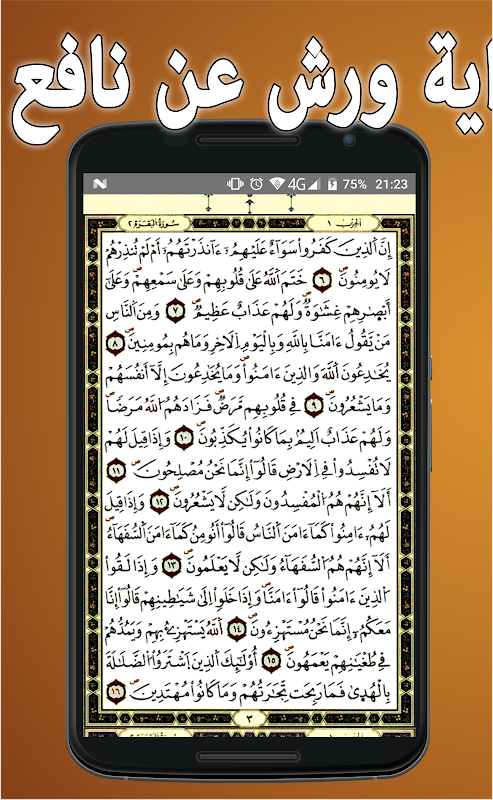 اية ورش عن نافع
4G 75% 21:23
سُورَةُ الْبَقَرَةِ ٢ الحِزْبُ ١
إِنَّ اَلذِينَ كَفَرُواْ سَوَآءٌ عَلَيْهِمُۥٓ ءَآنذَرْتَهُمُۥٓ أَمْ لَمْ تُنذِرْهُمْ
لَا يُومِنُونَۖ ٦ خَتَمَ اَللَّهُ عَلَىٰ قُلُوبِهِمْ وَعَلَىٰ سَمْعِهِمْۖ وَعَلَىٰٓ
أَبْصٰ۪رِهِمْ غِشَٰوَةٌۖ وَلَهُمْ عَذَابٌ عَظِيمٌۖ ٧ وَمِنَ اَلنَّاسِ
مَنْ يَّقُولُ ءَامَنَّا بِاللَّهِ وَبِالْيَوْمِ اِلَاخِرِ وَمَا هُم بِمُومِنِينَۖ ٨
يُخَٰدِعُونَ اَللَّهَ وَالذِينَ ءَامَنُواْۖ وَمَا يُخَٰدِعُونَ إِلَّآ أَنفُسَهُمْ
وَمَا يَشْعُرُونَۖ ٩ فِے قُلُوبِهِم مَّرَضٌۖ فَزَادَهُمُ اُللَّهُ مَرَضاًۖ
وَلَهُمْ عَذَابٌ اَلِيمُۢ بِمَا كَانُواْ يُكَذِّبُونَۖ ١٠ وَإِذَا قِيلَ لَهُمْ
لَا تُفْسِدُواْ فِے اِلَارْضِ قَالُوٓاْ إِنَّمَا نَحْنُ مُصْلِحُونَۖ ١١
أَلَآ إِنَّهُمْ هُمُ اُلْمُفْسِدُونَ وَلَٰكِن لَّا يَشْعُرُونَۖ ١٢ وَإِذَا قِيلَ
لَهُمُۥٓ ءَامِنُواْ كَمَآ ءَامَنَ اَلنَّاسُ قَالُوٓاْ أَنُومِنُ كَمَآ ءَامَنَ اَلسُّفَهَآءُۖ
أَلَآ إِنَّهُمْ هُمُ اُلسُّفَهَآءُ وَلَٰكِن لَّا يَعْلَمُونَۖ ١٣ وَإِذَا لَقُواْ
اُلذِينَ ءَامَنُواْ قَالُوٓاْ ءَامَنَّاۖ وَإِذَا خَلَوِاْ اِلَىٰ شَيَٰطِينِهِمْ قَالُوٓاْ إِنَّا
مَعَكُمُۥٓ إِنَّمَا نَحْنُ مُسْتَهْزِءُونَۖ ١٤ اَللَّهُ يَسْتَهْزِئُ بِهِمْ وَيَمُدُّهُمْ
فِے طُغْيَٰنِهِمْ يَعْمَهُونَۖ ١٥ أُوْلَٰٓئِكَ اَلذِينَ اَشْتَرَوُاْ اُلضَّلَٰلَةَ
بِالْهُدَىٰ فَمَا رَبِحَت تِّجَٰرَتُهُمْ وَمَا كَانُواْ مُهْتَدِينَۖ ١٦
٣